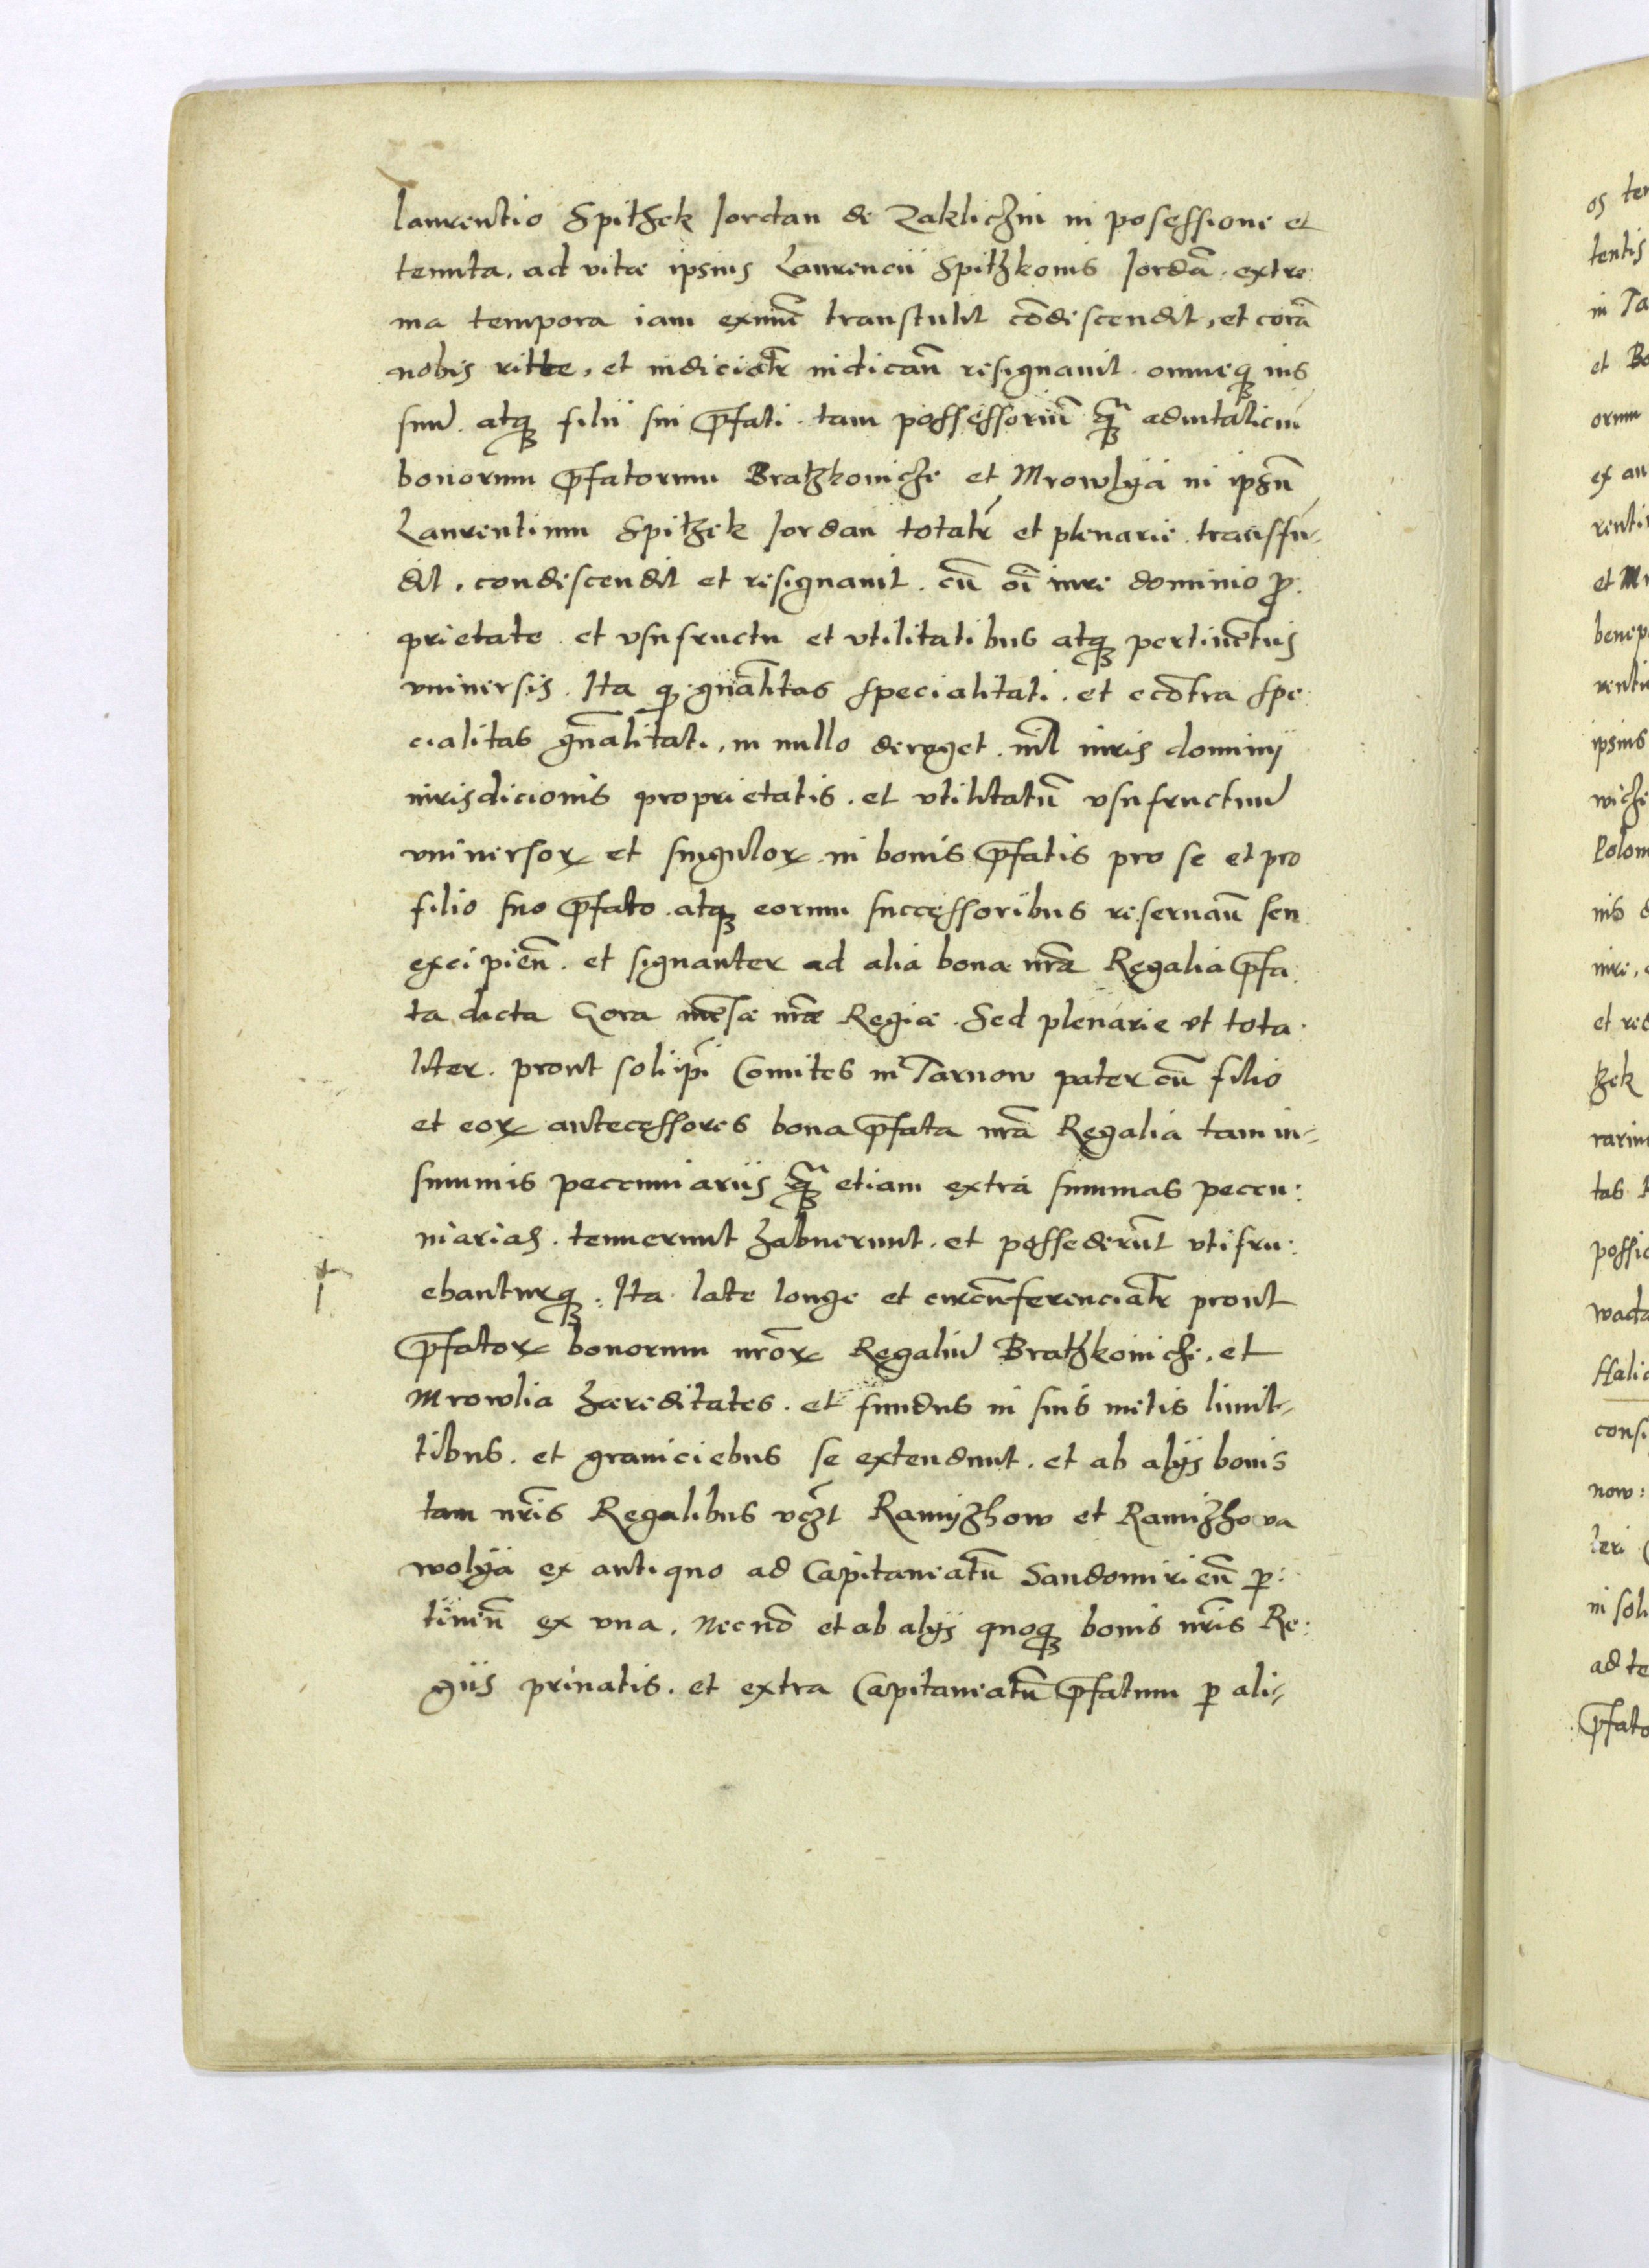 laurentio Spitzek Jordan de Zaklichzin in posessione et
tenuta. ad vitæ ipsius Laurencii Spitzkonis Jordā. extre
ma tempora iam ex nūc transtulit cōdescendit, et corā
nobis ritte, et iudiciatr iudican̄ resignauit. omneq̃ ius
suū. atq̃ filii sui p̄fati. tam possessoriū q̃ aduitaliciū
bonorum p̄fatorum Bratzkoniche et Mrowlya in ipsū
Laurentium Spitzek Jordan totatr̄ et plenarie transfu-
dit. condescendit et resignauit. cū oī iure dominio ꝓ:
prietate. et vsufructu et vtilitatibus atq̃ pertinētiis
vniuersis. Ita q̃ gn̄alitas specialitati. et ecōtra spe
cialitas gn̄alitati, in nullo deroget. nīl iuris dominij
iurisdicionis proprietatis. et vtilitatū vsufructuū
vniuersoꝝ et singuloꝝ in bonis p̄fatis pro se et pro
filio suo p̄fato. atq̃ eorum successoribus reseruan̄ seu
excipien̄. et signanter ad alia bona nr̄a Regalia p̄fa
ta dicta Gora mēsæ nr̄æ Regiæ. Sed plenarie vt tota.
liter. prout soli ip̄i Comites in Tarnow pater cū filio
et eoꝝ antecessores bona p̄fata nr̄a Regalia tam in-
summis peccuniariis q̃ etiam extra summas peccu:
niarias. tenuerunt habuerunt. et possederūt vtifru:
ebanturq̃. Ita late longe et circūferenciatr prout
p̄fatoꝝ bonorum nr̄oꝝ Regaliū Bratzkoniche, et
Mrowlia hæreditates. et fundus in suis metis limit-
tibus. et graniciebus se extendunt. et ab alijs bonis
tam nr̄is Regalibus vcz̄t Ramyzhow et Ramizhova
wolya ex antiquo ad Capitaneatū Sandomirien̄ ꝑ:
tinen̄ ex vna. Necnō et ab alijs quoq̃ bonis nr̄is Re:
giis priuatis. et extra Capitaneatū p̄fatum ꝑ ali-